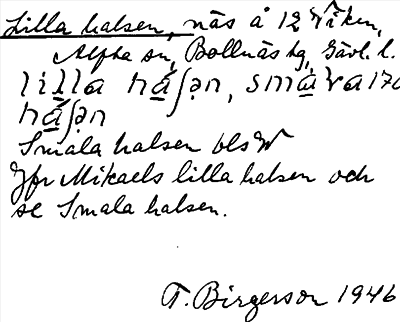 Lilla halsen, näs å 12 Viken,
Alfta sn, Bollnäs tg, Gävl. l.
Smala halsen bls W
Jfr Mikaels lilla halsen och
se Smala halsen.
T. Birgerson 1946